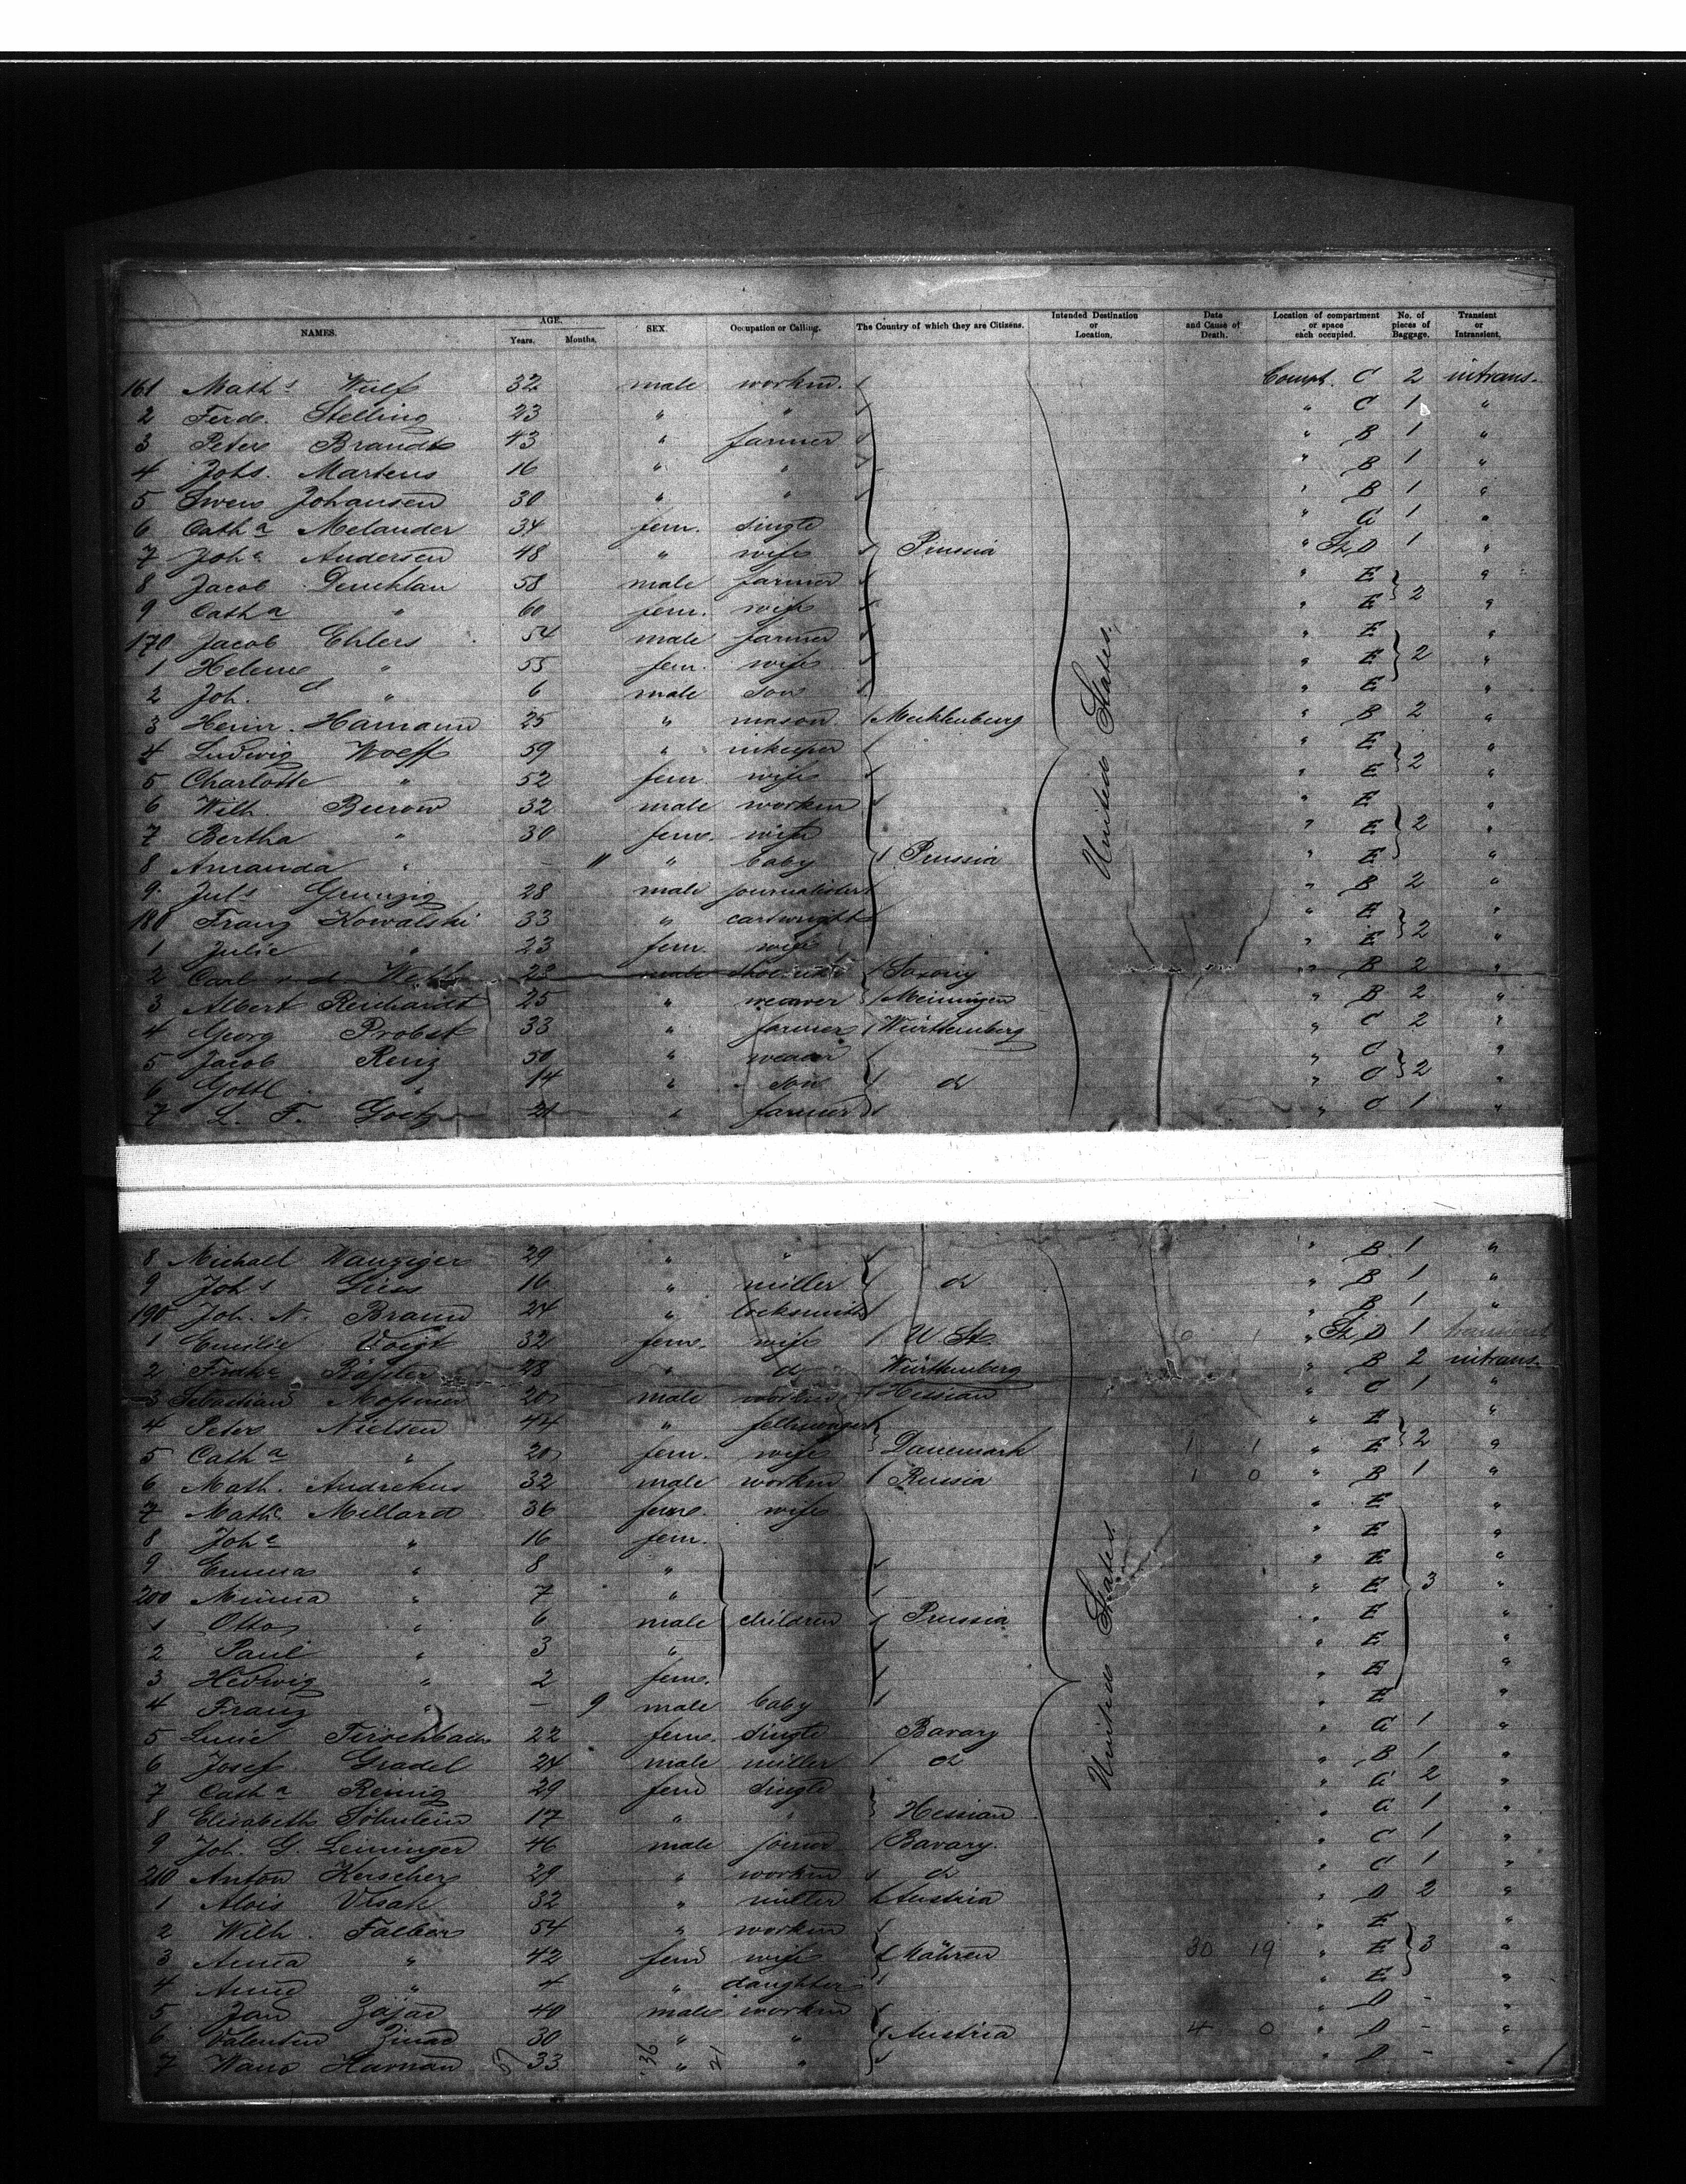 NAMES. AGE. Years. Months. SEX. Occupation or Calling. The Country of which they are Citizens. Intended Destination or Location. Date and Cause of Death. Location of compartment or space each occupied. No. of pieces of Baggage. Transient or Intransient.
161 Maths Wulf 32 male workm. Compt. C 2 intrans.
2 Ferd. Stelling 23 " " " C 1 "
3 Peter Brandt 43 " farmer " B 1 "
4 Johs. Martens 16 " " " B 1 "
5 Swen Johansen 30 " " " B 1 "
6 Catha Melander 34 fem. single " G 1 "
7 Johe Andersen 48 " wife Prussia " D 1 "
8 Jacob 58 male farmer " E 2 "
9 Catha " 60 fem. wife " E "
170 Jacob Ehlers 54 male farmer " E "
1 Helene " 55 fem. wife " E 2 "
2 Joh. " 6 male son " E "
3 Heinr. Hamann 25 " mason Mecklenburg " B 2 "
4 Ludwig Wolff 59 " inkeeper " E "
5 Charlotte " 52 fem. wife " E 2 "
6 Wilh. Burow 32 male workm " E "
7 Bertha " 30 fem. wife " E 2 "
8 Amanda " - 11 " baby Prussia " E "
9 Juls 28 male journalister " B 2 "
180 Franz Kowalski 33 " cartwright " E "
1 Julie " 23 fem. wife " E 2 "
2 Carl 23 male Saxony " B 2 "
3 Albert Reichardt 25 " weaver Meiningen " B 2 "
4 Georg Probst 33 " farmer Würthemberg " C 2 "
5 Jacob Renz 50 " weaver " C "
6 Gottl. " 14 " son do " C 2 "
7 L. F. Goetz 21 " farmer " C 1 "
United States.
8 Michael Wanziger 29 " " " B 1 "
9 Johs Giess 16 " miller do " B 1 "
190 Joh. N. Braun 24 " locksmith " B 1 "
1 Emilie Voigt 32 fem. wife U. St. " D 1 transient
2 28 " do Würthemberg " B 2 intrans.
3 Sebastian 20 male workm Hessian " C 1 "
4 Peter Nielsen 44 " " E "
5 Catha " 20 fem. wife Danemark 1 1 " E 2 "
6 Math. Andrekus 32 male workm Russia 1 0 " B 1 "
7 Mathe Millard 36 fem. wife " E "
8 Johe " 16 fem. " E "
9 Emma " 8 " " E "
200 Minna " 7 " " E 3 "
1 Otto " 6 male children Prussia " E "
2 Paul " 3 " " E "
3 Hedwig " 2 fem. " E "
4 Franz " - 9 male baby " E "
5 Lucie 22 fem. single Bavary " G 1 "
6 Josef Gradel 24 male miller do " B 1 "
7 Catha Reinig 29 fem single " G 2 "
8 Elisabeth Söhnlein 17 " " Hessian " G 1 "
9 Joh. G. Leininger 46 male joiner Bavary. " C 1 "
210 Anton Herscher 29 " workm do " C 1 "
1 Alois Visak 32 " miller Austria " D 2 "
2 Wilh. Falber 54 " workm " E "
3 Anna " 42 fem wife Mähren 30 19 " E 3 "
4 Anna " 4 " daughter " E "
5 Jan Zajac 40 male workm " D - "
6 Valentin 30 " " Austria 4 0 " D - "
7 Harnan 33 " " " D - "
United States.
57 36 21